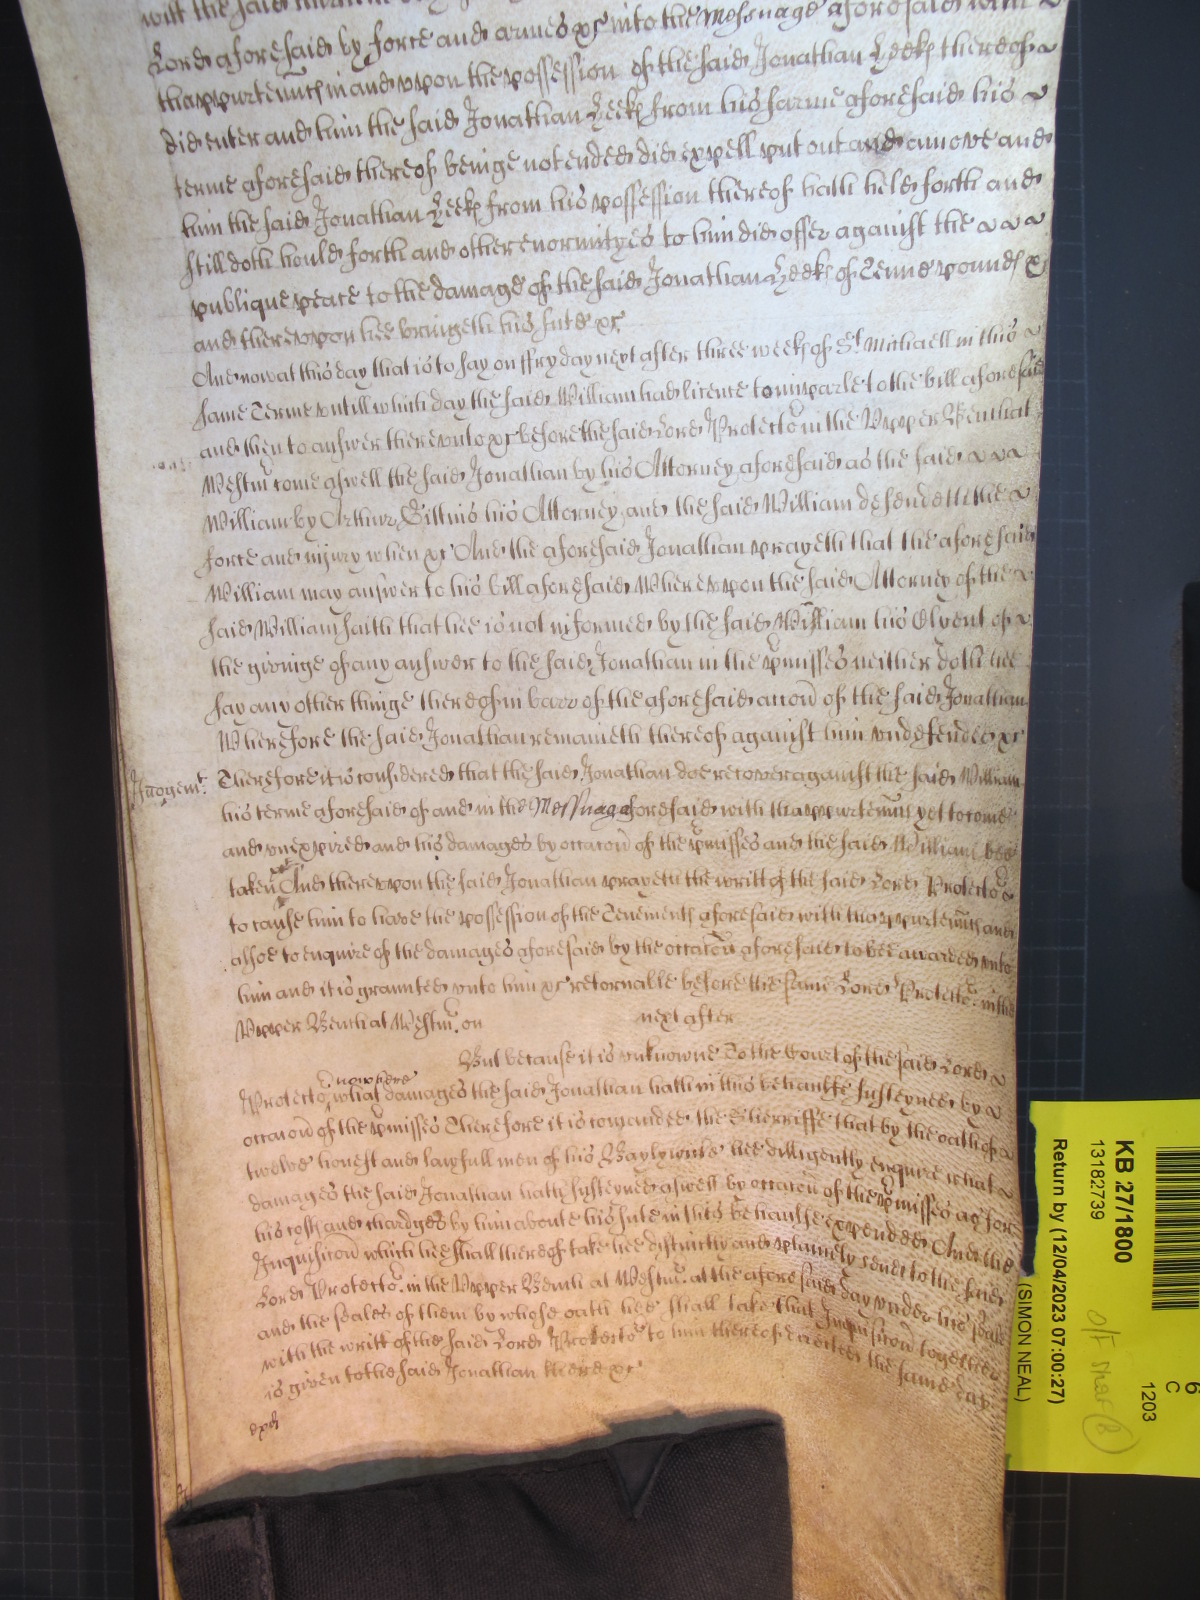 Lord aforesaid by force and armes &c into the Messuage aforesaid with
thappurtenncs in and uppon the possession of the said Jonathan Leeke thereof
did enter and him the said Jonathan Leeke from his farme aforesaid his
terme aforesaid thereof beinge not ended did expell put out and amove and
him the said Jonathan Leeke from his possession thereof hath held forth and
still doth hould forth and other enormityes to him did offer against the
publique peace to the damage of the said Jonathan Leeke of Tenne pounds
and thereuppon hee bringeth his sute &c
And now at this day that is to say on ffryday next after three weeks of St. Michaell in this
same Terme untill which day the said William had licence to imparle to the bill aforesaid
and then to answer thereunto &c before the said Lord Protector in the Upper Bench at
Westmr come aswell the said Jonathan by his Attorney aforesaid as the said
William by Arthur his Attorney and the said William defendeth the
force and injury when &c And the aforesaid Jonathan prayeth that the aforesaid
William may answer to his bill aforesaid Whereuppon the said Attorney of the
said William saith that hee is not informed by the said William his Clyent of
the givinge of any answer to the said Jonathan in the pmisses neither doth hee
say any other thinge thereof in barr of the aforesaid accon of the said Jonathan
Wherefore the said Jonathan remaineth thereof against him undefended &c
Judgemt: Therefore it is considered that the said Jonathan doe recover against the said William
his terme aforesaid of and in the Messuage aforesaid with thappurtennces yet to come
and unexpired and his damages by occacon of the pmisses and the said William bee
taken And thereuppon the said Jonathan prayeth the writt of the said Lord Protector
to cause him to have the possession of the Tenements aforesaid with thappurtenncs and
alsoe to enquire of the damages aforesaid by the occacon aforesaid to bee awarded unto
him and it is graunted unto him &c retornable before the same Lord Protector in the
Upper Bench at Westmr. on next after
But because it is unknowne To the Court of the said Lord
Protector nowhere what damages the said Jonathan hath in this behaulfe susteyned by
occacon of the pmisses Therefore it is comanded the Sherriffe that by the oath of
twelve honest and lawfull men of his Baylywicke hee dilligently enquire what
damages the said Jonathan hath susteyned aswell by occacon of the pmisses as for
his costs and chardges by him aboute his sute in this behaulfe expended And the
Inquisicon which hee shall thereof take hee distinctly and plainely send to the said
Lord Protector in the Upper Bench at Westmr. at the aforesaid day under his seale
and the seales of them by whose oath hee shall take that Inquisicon together
with the writt of the said Lord Protector to him thereof directed the same day
is given to the said Jonathan there &c
KB 27/1800
13182739
Return by (12/04/2023 07:00:27)
(SIMON NEAL)
6
C
1203